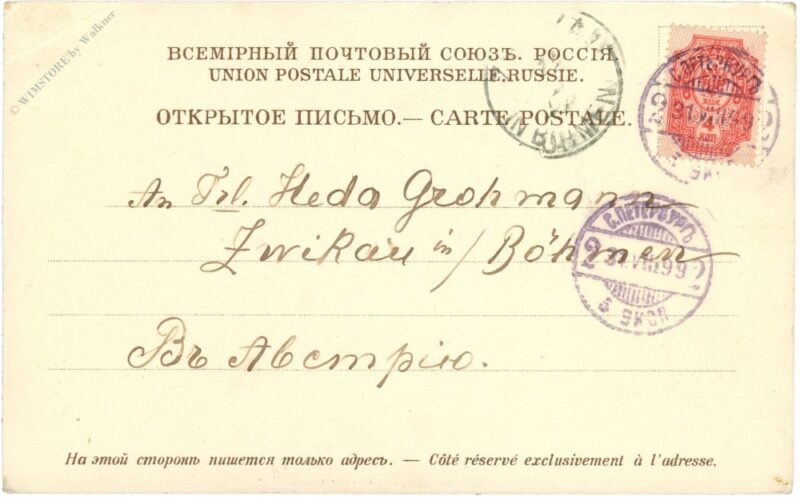 © WIMSTORE by Walkner
ВСЕМІРНЫЙ ПОЧТОВЫЙ СОЮЗЪ. РОССІЯ
UNION POSTALE UNIVERSELLE. RUSSIE.
ОТКРЫТОЕ ПИСЬМО.— CARTE POSTALE.
IN BÖHMEN
С.ПЕТЕРБУРГЪ
4
КОП
An Frl. Heda Grohmann
Zwikau in/ Böhmen
С.ПЕТЕРБУРГЪ
2 31.VIII.99 2
5 ЭКСП
Въ Австрію.
На этой сторонѣ пишется только адресъ. — Côté réservé exclusivement à l'adresse.